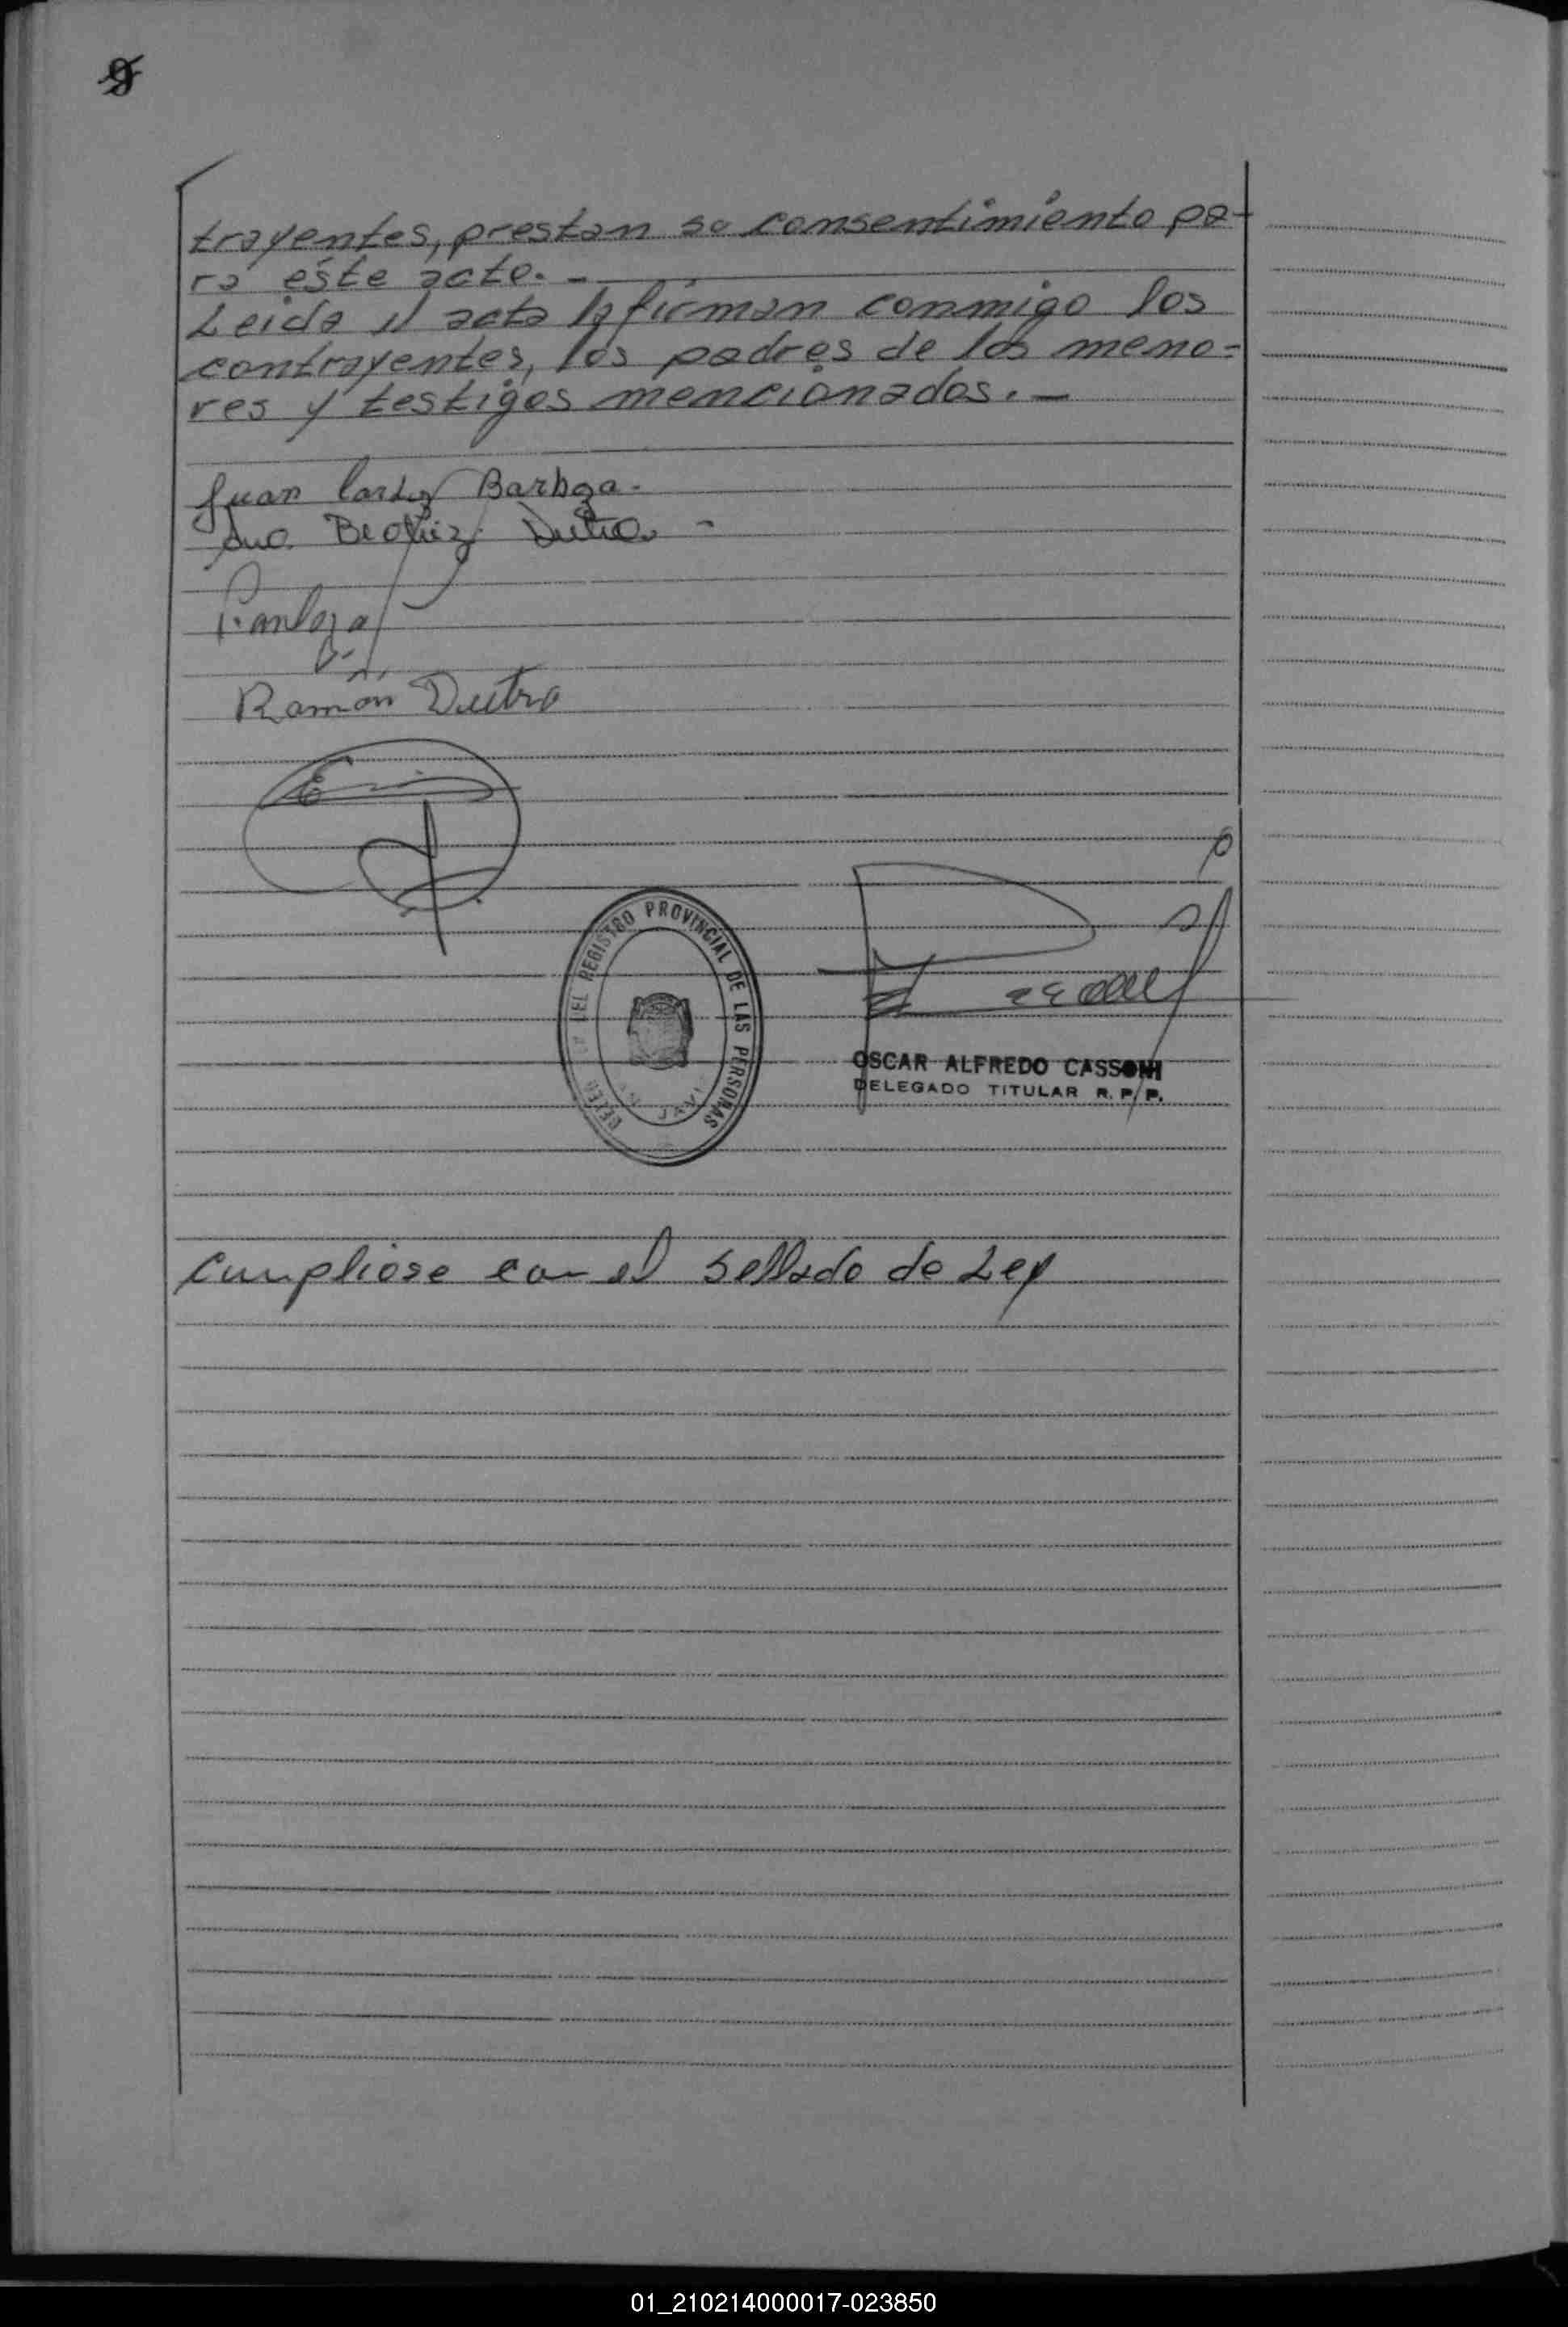 trayentes, prestan su consentimiento pa-
ra éste acto. -
Leida el acta la firman conmigo los
contrayentes, los padres de los meno=
res y testigos mencionados. -
Juan Carlos Barboza.
Ana Beatriz Dutra -
Ramón Dutra
REGISTRO PROVINCIAL DE LAS PERSONAS
OSCAR ALFREDO CASSONI
DELEGADO TITULAR R. P. P.
Cumpliose con el sellado de Ley
01_210214000017-023850